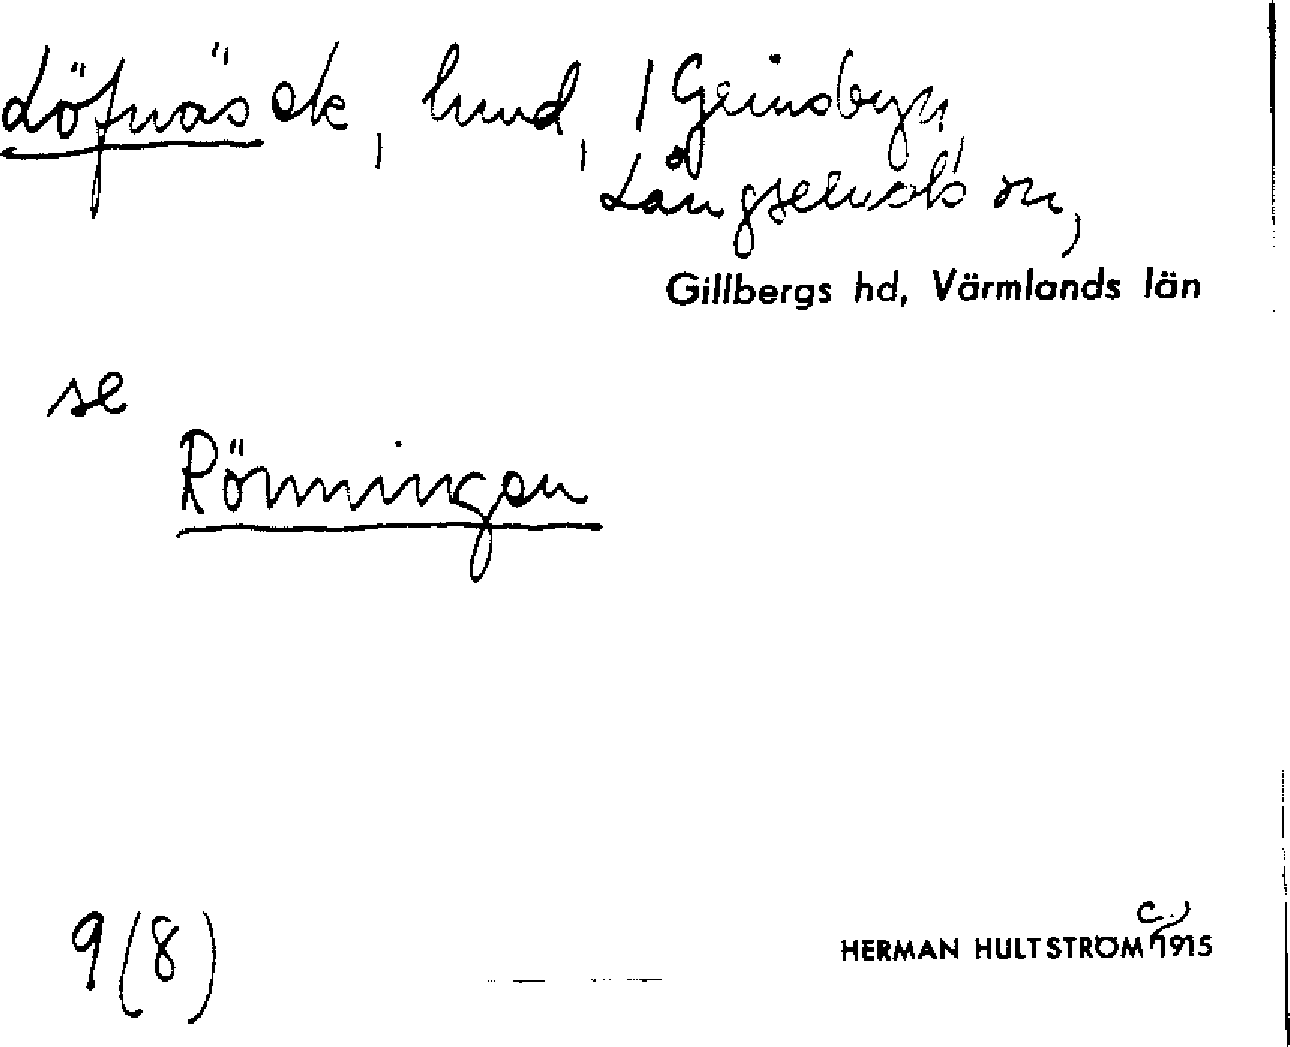 Löfnäs ek, lund, /Geinsbyn,
Långserud's sn,
Gillbergs hd, Värmlands län
se
Rönningen
9 (8)
HERMAN HULTSTRÖM c:) 1915